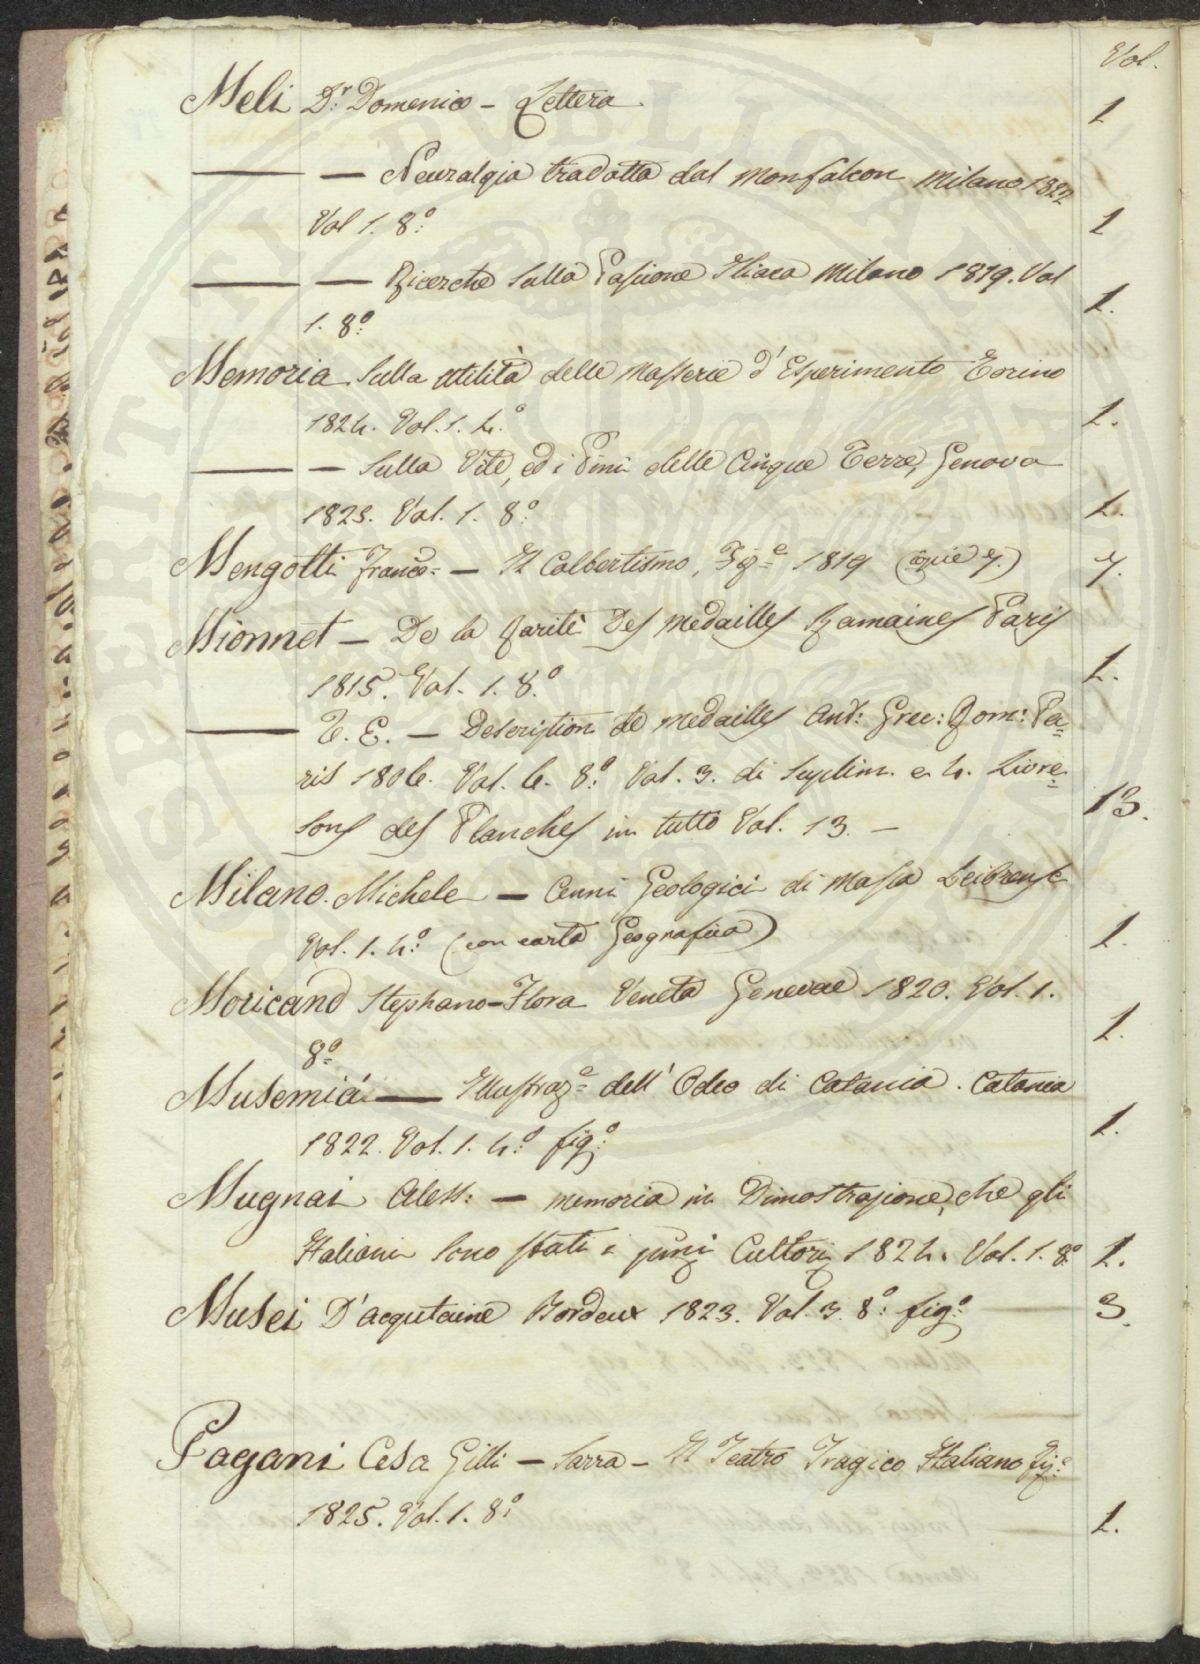 Vol.
Meli D.r Domenico - Lettera. 1
— — Neuralgia tradotta dal Monfalcon Milano 1822
Vol 1. 8.º 1
— — Ricerche sulla Passione Iliaca Milano 1819. Vol
1. 8º 1.
Memoria sulla utilità delle Masserie d'Esperimento Torino
1824. Vol. 1. 4.º 1.
— — sulla Vite, ed i Vini delle Cinque Terre, Genova
1825. Vol. 1. 8.º 1.
Mengotti Franc.º — Il Colbertismo, Fig.e 1819 (copie 7.) 7.
Mionnet — De la Rarité Des Medailles Romaines Paris
1815. Vol. 1. 8.º 1.
— T. E. — Description de Medailles Ant: Grec: Rom: Pa=
ris 1806. Vol. 6. 8.º Vol. 3. di Suplim. e 4. Livre=
sons des Planches in tutto Vol. 13. — 13.
Milano Michele — Cenni Geologici di Massa
Vol. 1. 4.º (con carta Geografica) 1.
Moricand Stephano - Flora Veneta Genevae 1820. Vol. 1.
8º 1.
Musemia — Illustraz.e dell' Odeo di Catania. Catania
1822. Vol. 1. 4.º fig.º 1.
Mugnai Aless: — memoria in Dimostrazione, che gli
Italiani sono stati i primi Cultori 1824. Vol. 1. 8º 1.
Musei D'acqutaine Bordeux 1823. Vol. 3. 8.º fig.º 3.
Pagani Cesa Gilli — Sarra - Il Teatro Tragico Italiano Fig.e
1825. Vol. 1. 8.º 1.